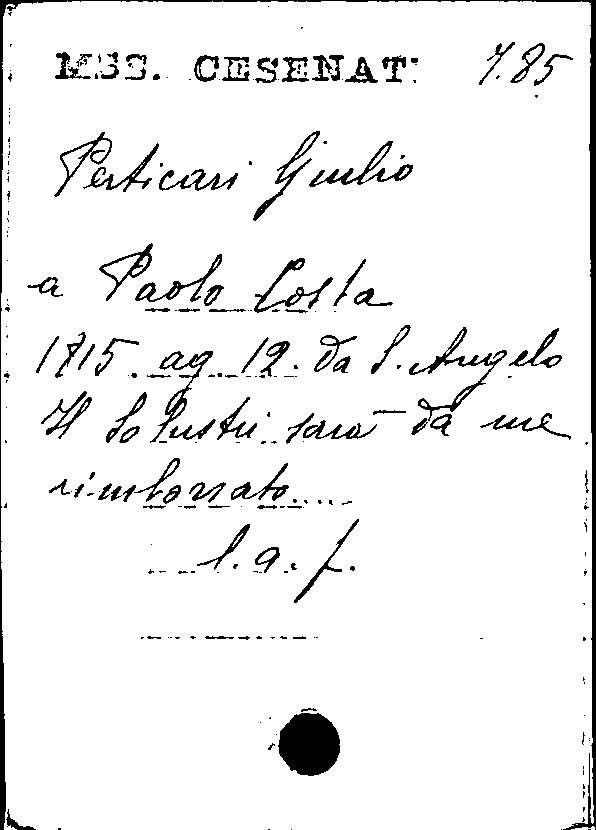 MSS. CESENAT. 7.85
Perticari Giulio
a Paolo Costa
1815. ag. 12. da S. Angelo
Il Solustri sarà da me
rimborsato....
l. a. f.